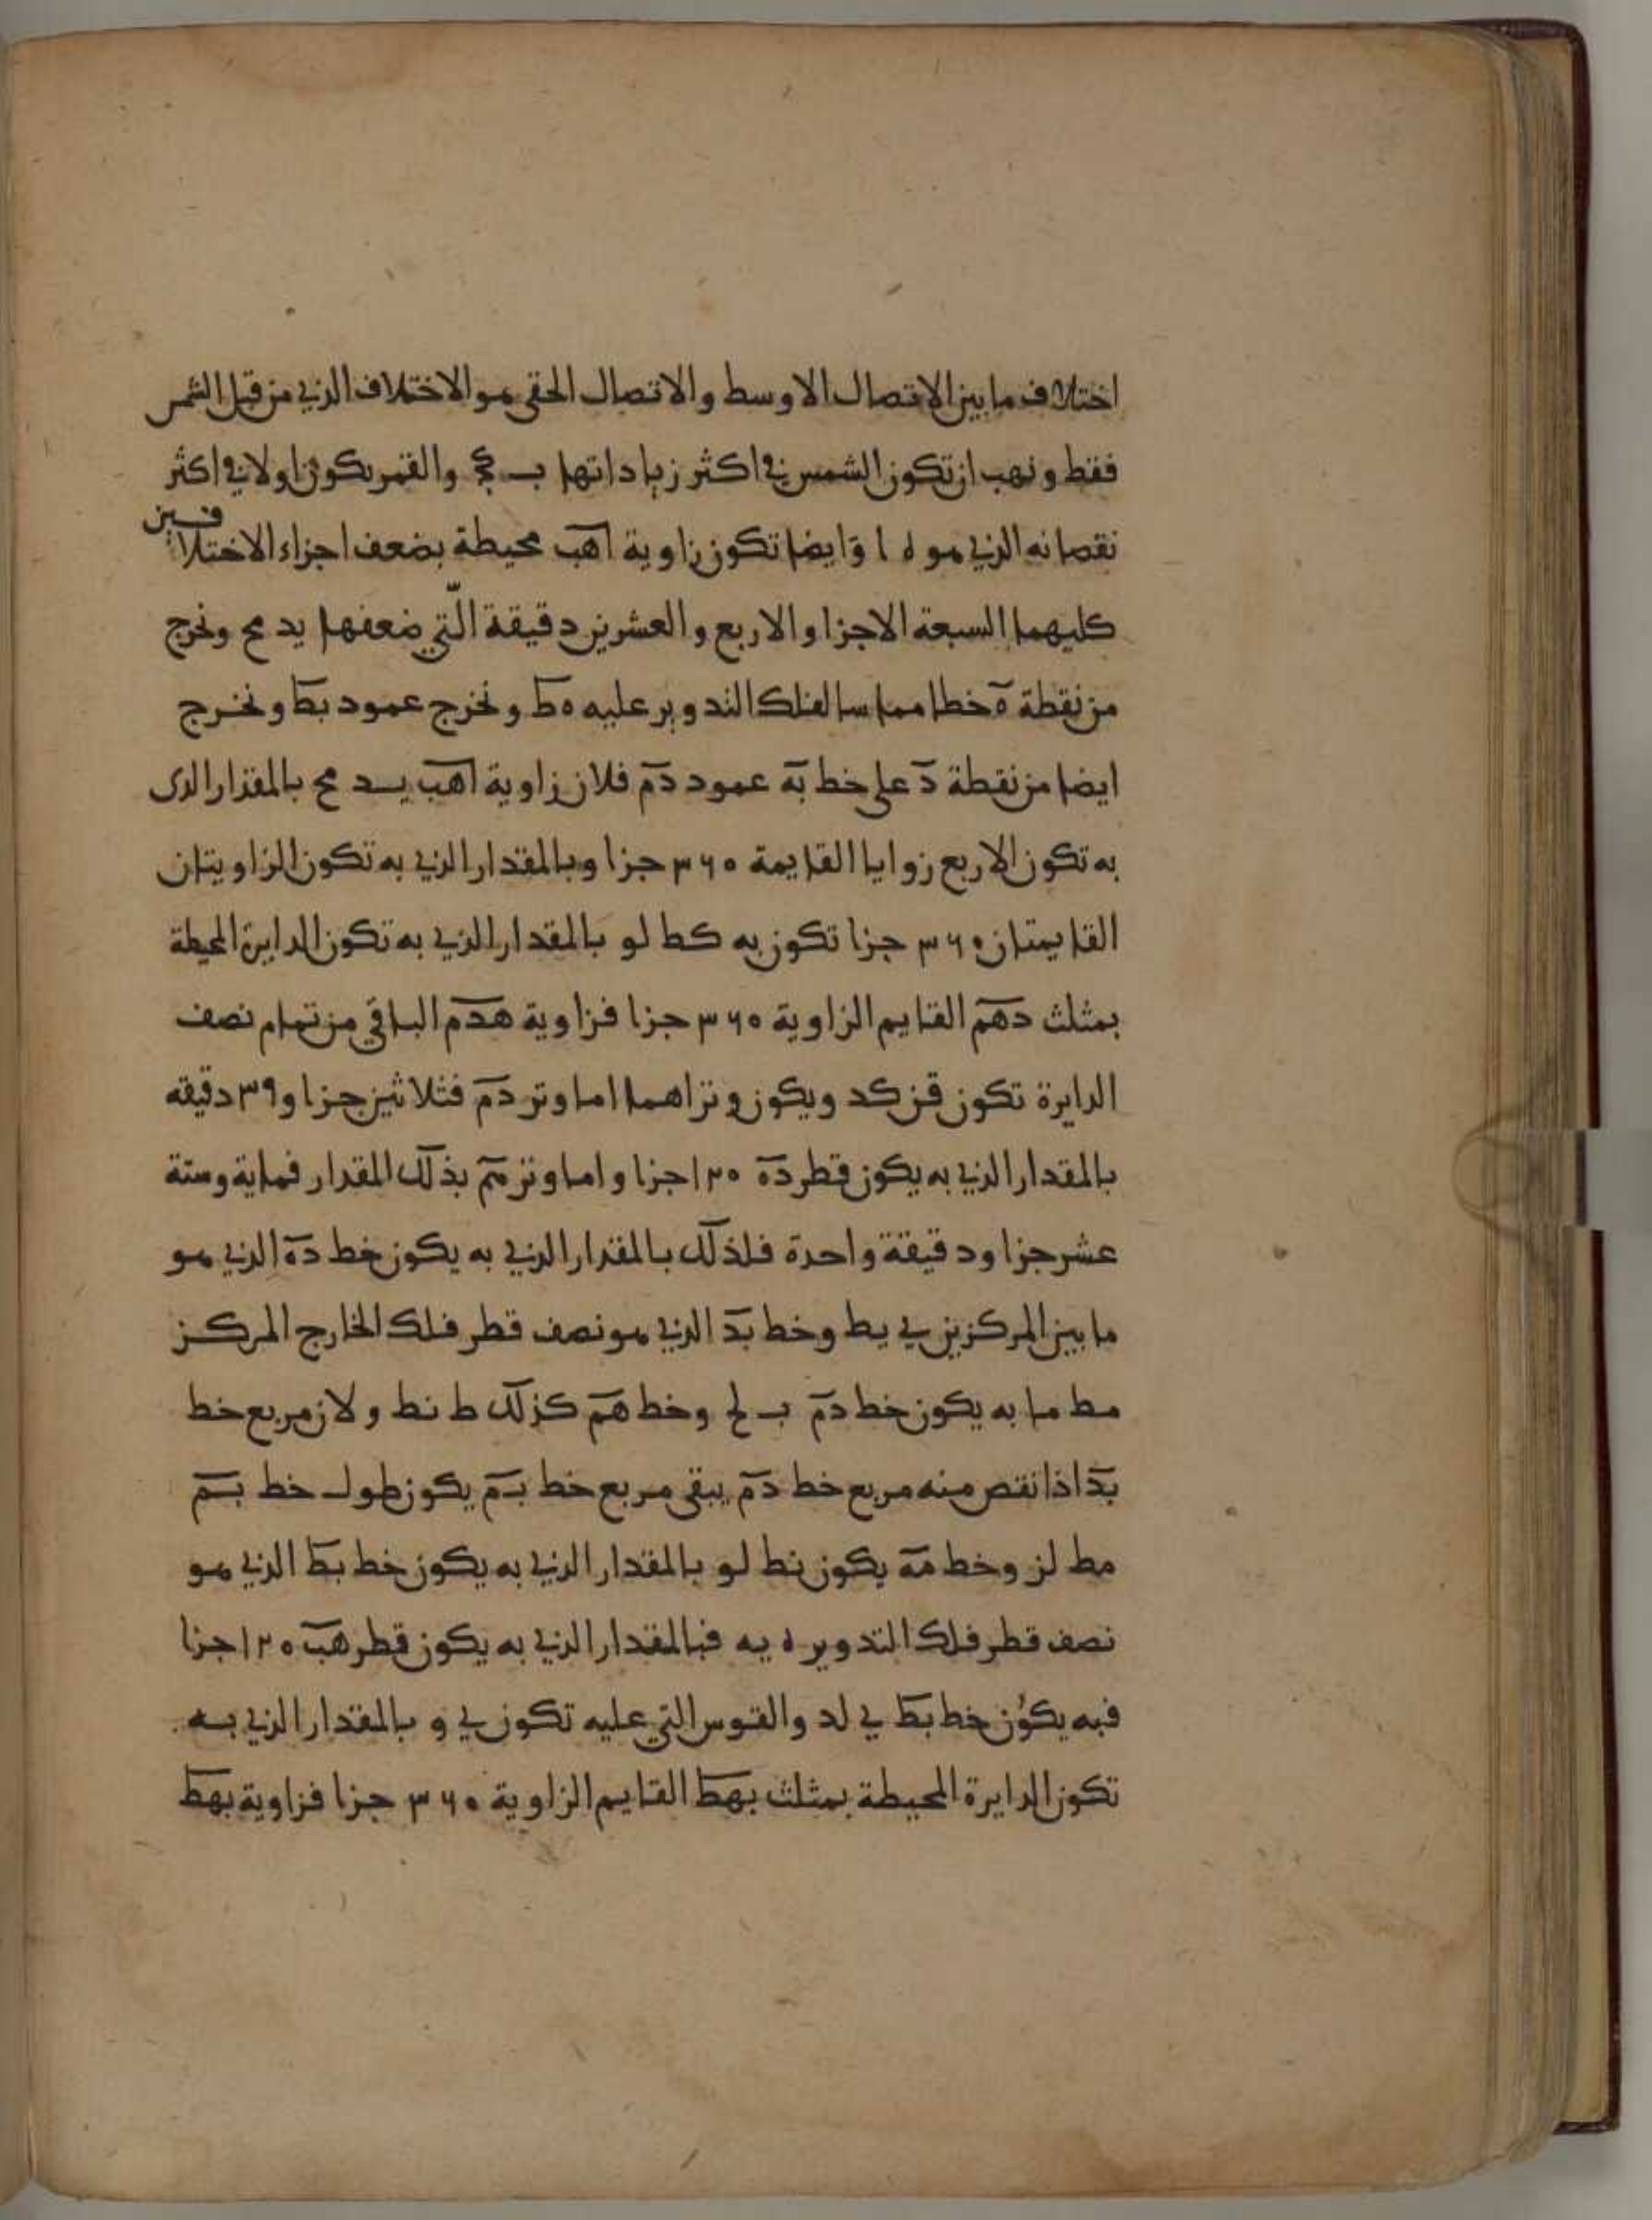 اختلاف ما بين الاتصال الاوسط والاتصال الحقي هو الاختلاف الذي من قبل الشمس
فقط ونهب ان تكون الشمس في اكثر زياداتها ب كج والقمر يكون اولا في اكثر
نقصانه الذي هو ه ا وايضا تكون زاوية اهب محيطة بضعف اجزاء الاختلافين
كليهما السبعة الاجزا والاربع والعشرين دقيقة التي ضعفها يد مح ونخرج
من نقطة ه خطا مماسا لفلك التدوير عليه هط ونخرج عمود بط ونخرج
ايضا من نقطة د على خط به عمود دم فلان زاوية اهب يد مح بالمقدار الذى
به تكون الاربع زوايا القايمة ٣٦٠ جزا وبالمقدار الذي به تكون الزاويتان
القايمتان ٣٦٠ جزا تكون به كط لو بالمقدار الذي به تكون الدايرة المحيطة
بمثلث دهم القايم الزاوية ٣٦٠ جزا فزاوية هدم الباقي من تمام نصف
الدايرة تكون قن كد ويكون وتراهما اما وتر دم فثلاثين جزا و٣٩ دقيقه
بالمقدار الذي به يكون قطر ده ١٢٠ جزا واما وتر هم بذلك المقدار فماية وستة
عشر جزا ودقيقة واحدة فلذلك بالمقدار الذي به يكون خط ده الذي هو
ما بين المركزين ي يط وخط بد الذي هو نصف قطر فلك الخارج المركز
مط ما به يكون خط دم ب لح وخط هم كذلك ط نط ولان مربع خط
بد اذا نقص منه مربع خط دم يبقى مربع خط بم يكون طول خط بم
مط لز وخط مه يكون نط لو بالمقدار الذي به يكون خط بط الذي هو
نصف قطر فلك التدوير ه يه فبالمقدار الذي به يكون قطر هب ١٢٠ جزا
فبه يكون خط بط ي لد والقوس التي عليه تكون ي و بالمقدار الذي به
تكون الدايرة المحيطة بمثلث بهط القايم الزاوية ٣٦٠ جزا فزاوية بهط